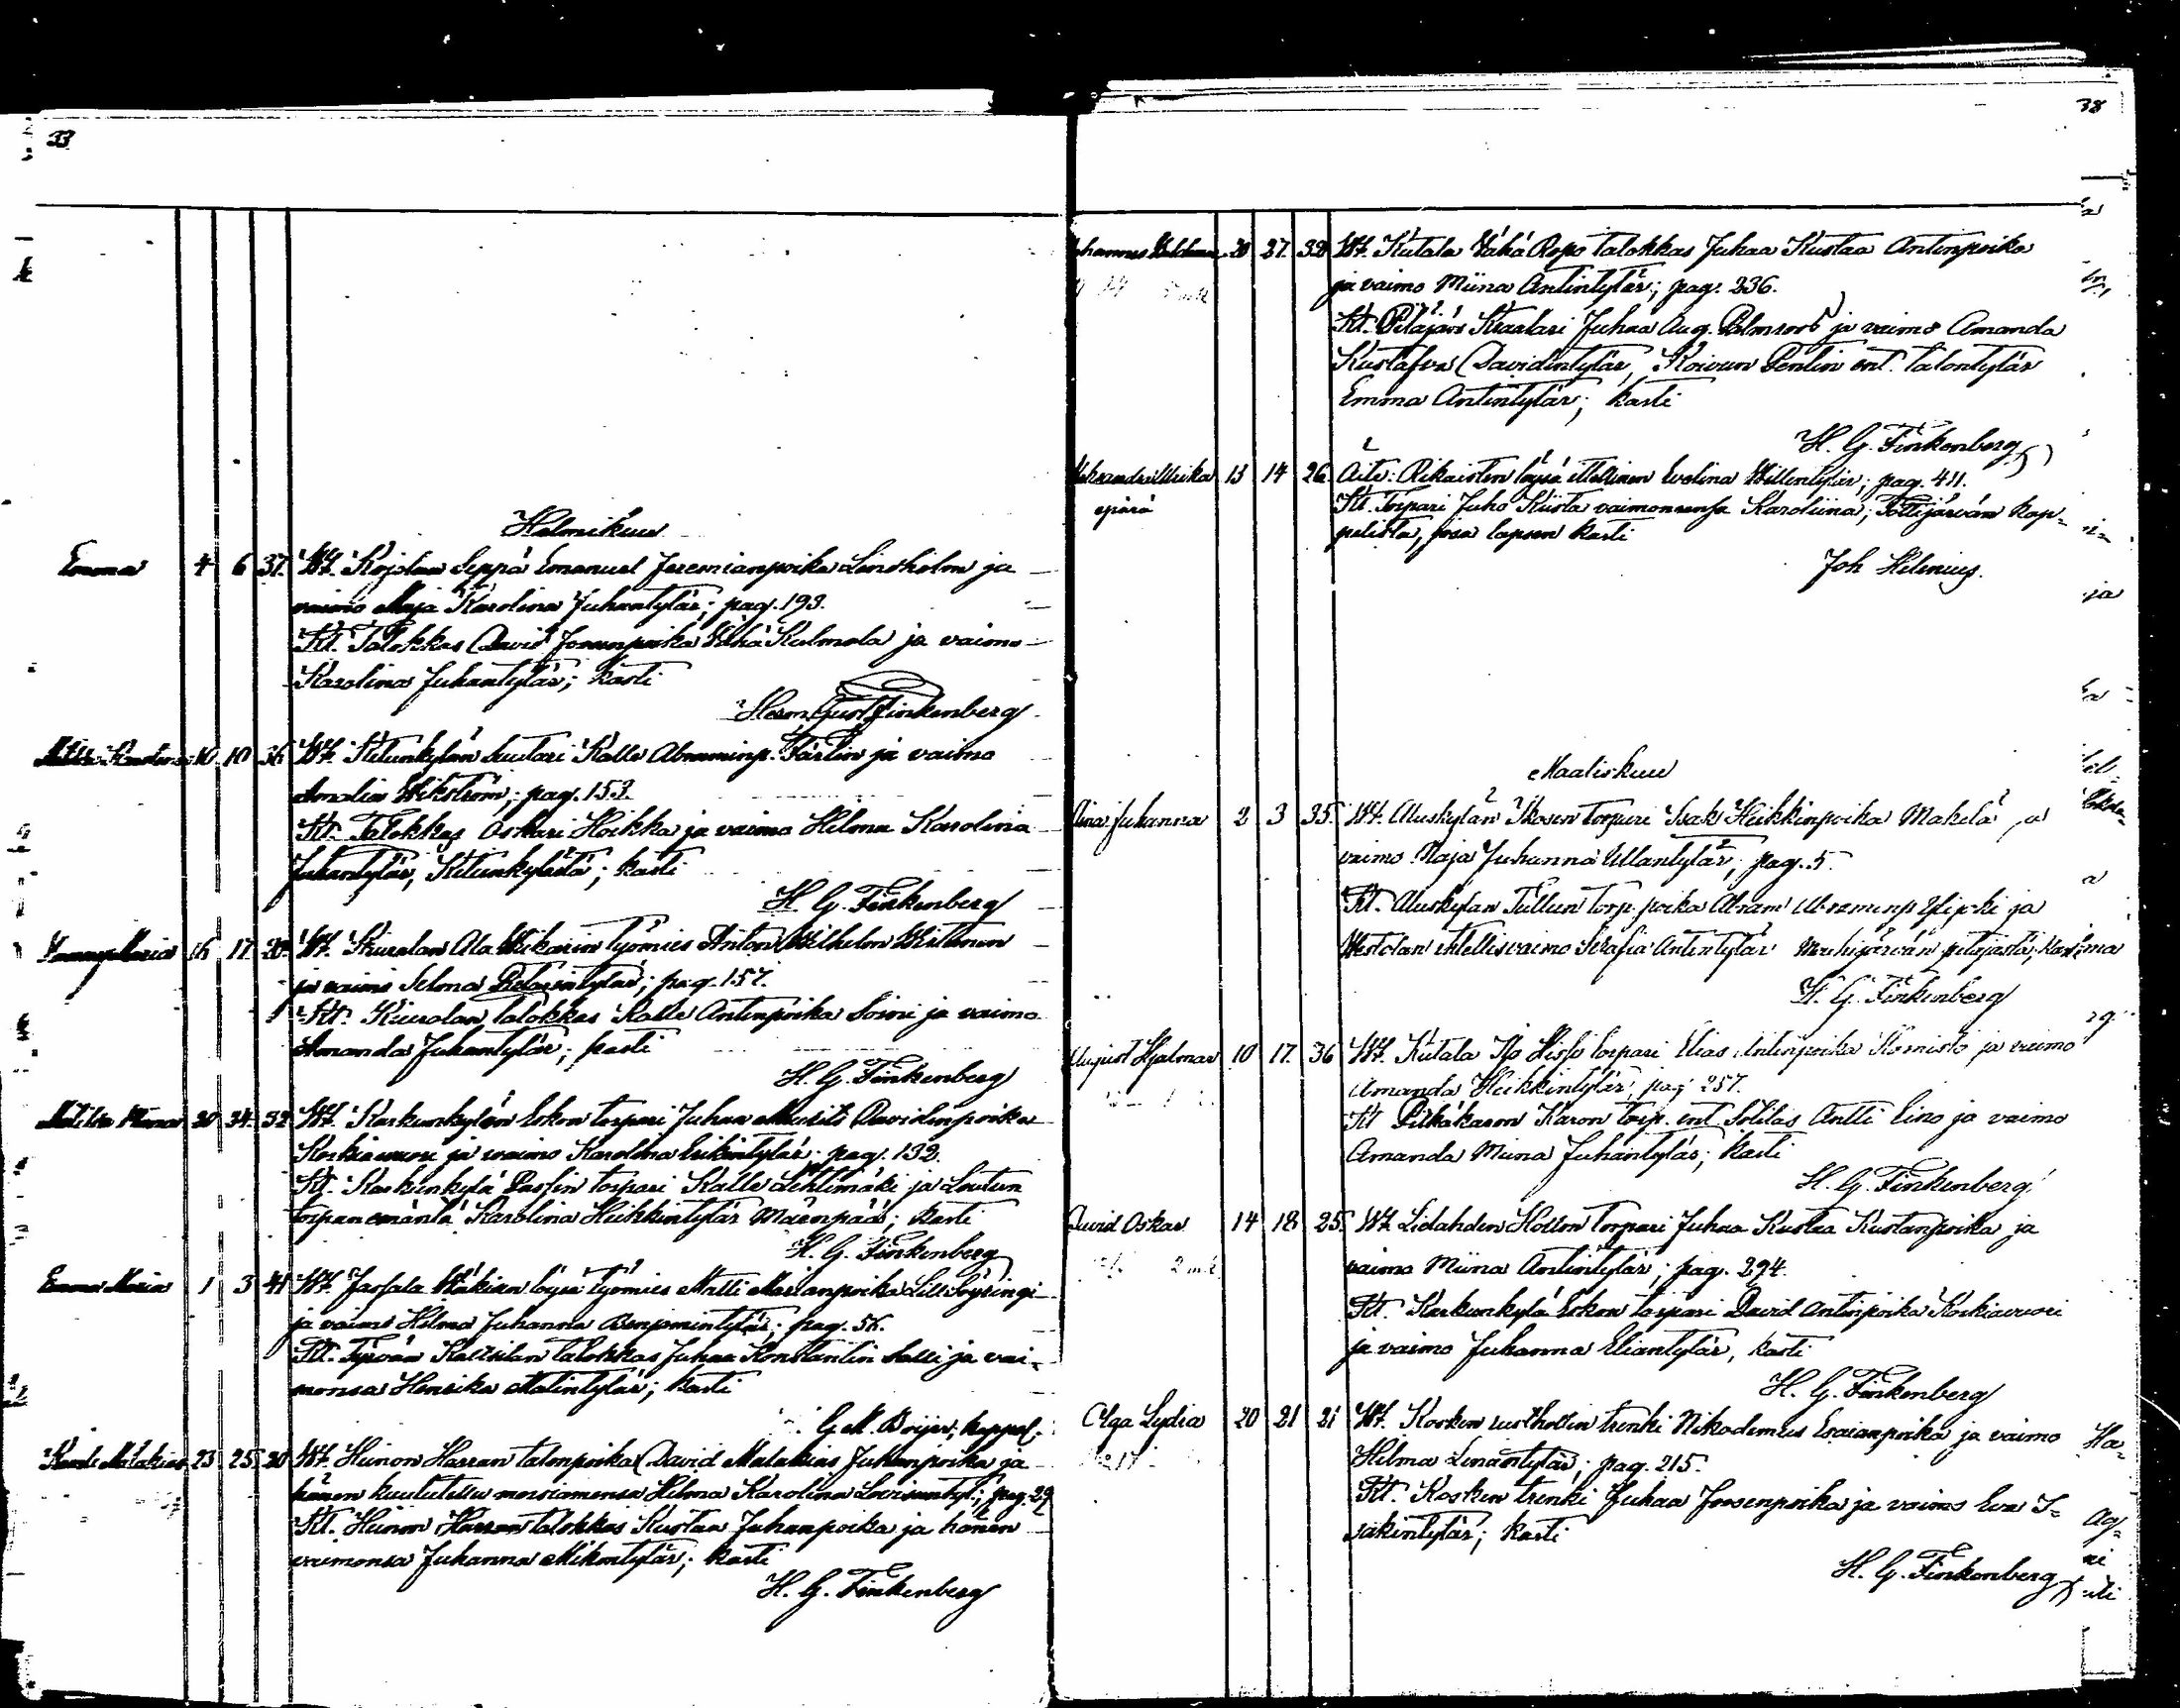 33
Helmikuu
Emma 4 6 37. Wt. Kojolan Seppä Emanuel Jeremianpoika Lindholm ja
vaimo Maja Karolina Juhantytär; pag. 193.
Kt. Talokkas David Joosunpoika Vähä Kulmala ja vaimo
Karolina Juhantytär; kasti
Herm. Gust. Finkenberg
10 10 36 Wt. Kiiunkylän suutari Kalle Abraminp. Färlin ja vaimo
Amalia Wikström; pag. 153.
Kt. Talokkas Oskari Hoikka ja vaimo Hilma Karolina
Juhantytär, ; kasti
H. G. Finkenberg
Maria 16 17 20. Wt. Kiuralan Ala työmies Anton Wilhelm
ja vaimo Selma ; pag. 157.
Kt. Kiuralan talokkas Kalle Antinpoika Soini ja vaimo
Amanda Juhantytär; kasti
H. G. Finkenberg
Matilda Miina 20 24. 32 Wt. Karkunkylän Eskon torpari Juhaa Davidinpoika
Koskiavuori ja vaimo Karolina Erikintytär; pag. 132.
Kt. Karkunkylä torpari Kalle Lehtimäki ja
torpan emäntä Karolina Heikkintytär Mäenpää; kasti
H. G. Finkenberg
Emma Maria 1 3 41 Wt. loysä työmies Matti Matianpoika
ja vaimo Hilma Juhanna Benjamintytär; pag. 56.
Kt. Tyrvään talokkas Juhaa Konstantin Salli ja vai-
monsa Henrika Matintytär; kasti
G. M. Brijer, kappal.
Malakias 23 25. 20 Wt. Heinon Harran talonpoika David Malakias Juhanpoika ja
hänen kuulutettu morsiamensa Hilma Karolina ; pag. 29
Kt. Heinon Harran talokkas Kustaa Juhanpoika ja hänen
vaimonsa Juhanna Mikontytär; kasti
H. G. Finkenberg
38
20 27. 32 Wt. Kutala Vähä Ropo talokkas Juhaa Kustaa Antinpoika
ja vaimo Miina Antintytär; pag. 236.
Kt. Pitäjäns Kraatari Juhaa Aug. Palmroos ja vaimo Amanda
Kustafva Davidintytär, Koivun Pentin ent. talontytär
Emma Antintytär; kasti
H. G. Finkenberg
13 14 26 Äiti: Rikaisten loysä itsellinen Evelina Willentytär; pag. 411.
epärä Kt. Torpari Juho Kiista vaimonensa Karoliina, Kap-
pelista, josa lapsen kasti
Joh Helenius.
Maaliskuu
Aina Juhanna 2 3 35. Wt. Aluskylän Ikosen torpari Isak Heikkinpoika Makelä ja
vaimo Maja Juhanna Ullantytär; pag. 5
Kt. Aluskylän Tullun torp. poika Abram Abraminp Ylijoki ja
itsellisvaimo Serafia Antintytär Mouhijärvän pitäjästä;
H. G. Finkenberg
August Hjalmar 10 17. 36 Wt. Kutala Iso torpari Elias Antinpoika Kornisto ja vaimo
Amanda Heikkintytär, pag. 257.
Kt Pitkäkaron Karon torp. ent Sotilas Antti Eino ja vaimo
Amanda Miina Juhantytär; kasti
H. G. Finkenberg
David Oskar 14 18 25. Wt. Lielahden torpari Juhaa Kustaa Kustanpoika ja
vaimo Miina Antintytär; pag. 294.
Kt. Karkunkylä Eskon torpari David Antinpoika Koskiavuori
ja vaimo Juhanna Eliantytär, kasti
H. G. Finkenberg
Olga Lydia 20 21 21 Wt. Kosken trenki Nikodemus Esaianpoika ja vaimo
Hilma ; pag. 215.
Kt. Kosken trenki Juhaa Joosenpoika ja vaimo Eva I-
sakintytär; kasti
H. G. Finkenberg